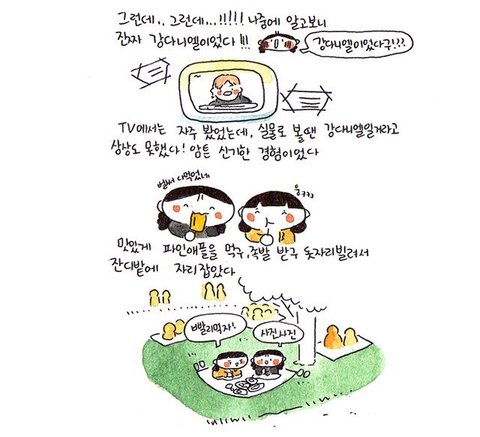 그런데.. 그런데...!!!!! 나중에 알고보니
진짜 강다니엘이었다!!!
강다니엘이었다구!!?
TV에서는 자주 봤었는데, 실물로 볼땐 강다니엘일거라고
상상도 못했다! 암튼 신기한 경험이었다
벌써 다먹었네
웅ㅋㅋㅋ
맛있게 파인애플을 먹구, 족발 받구 돗자리빌려서
잔디밭에 자리잡았다
빨리먹자!
사진사진